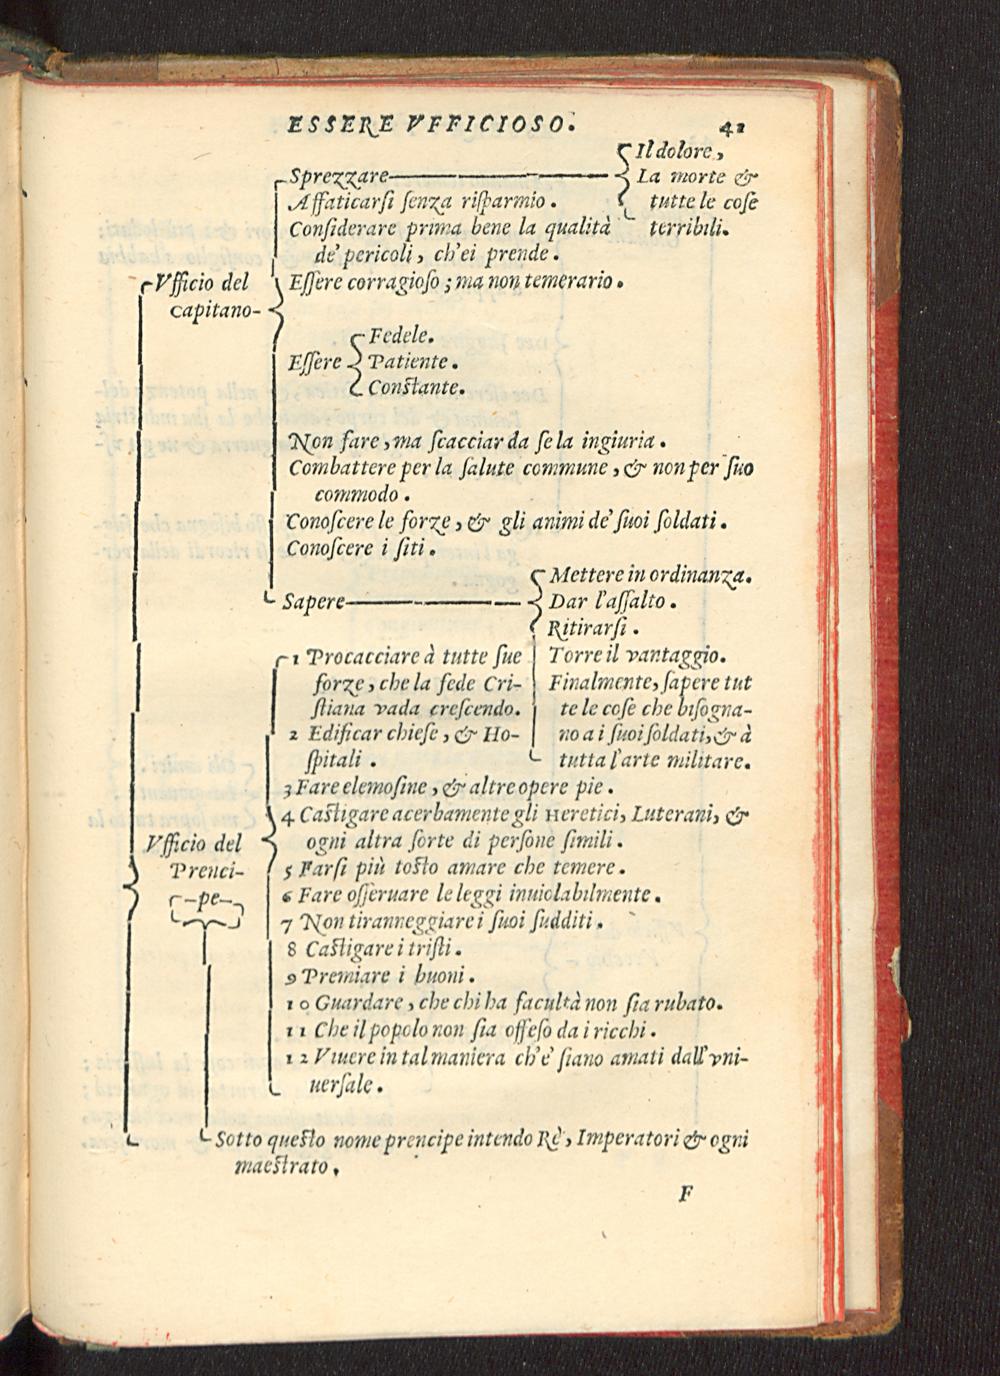 ESSERE VFFICIOSO.
41
Sprezzare
Il dolore,
La morte &
tutte le coſe
terribili.
Affaticarſi ſenza riſparmio.
Conſiderare prima bene la qualità
de' pericoli, ch'ei prende.
Vfficio del
Capitano-
Eſſere corragioſo; ma non temerario.
Eſſere
Fedele.
Patiente.
Conſtante.
Non fare, ma ſcacciar da ſe la ingiuria.
Combattere per la ſalute commune, & non per ſuo
commodo.
Conoſcere le forze, & gli animi de' ſuoi ſoldati.
Conoſcere i ſiti.
Sapere
Mettere in ordinanza.
Dar l'aſſalto.
Ritirarſi.
Torre il vantaggio.
Finalmente, ſapere tut
te le coſe che biſogna-
no a i ſuoi ſoldati, & à
tutta l'arte militare.
Vfficio del
Prenci-
pe
1 Procacciare à tutte ſue
forze, che la fede Cri-
ſtiana vada creſcendo.
2 Edificar chieſe, & Ho-
ſpitali.
3 Fare elemoſine, & altre opere pie.
4 Caſtigare acerbamente gli Heretici, Luterani, &
ogni altra ſorte di perſone ſimili.
5 Farſi più toſto amare che temere.
6 Fare oſſeruare le leggi inuiolabilmente.
7 Non tiranneggiare i ſuoi ſudditi.
8 Caſtigare i triſti.
9 Premiare i buoni.
10 Guardare, che chi ha facultà non ſia rubato.
11 Che il popolo non ſia offeſo da i ricchi.
12 Viuere in tal maniera ch'e' ſiano amati dall' vni-
uerſale.
Sotto queſto nome prencipe intendo Rè, Imperatori & ogni
maeſtrato.
F